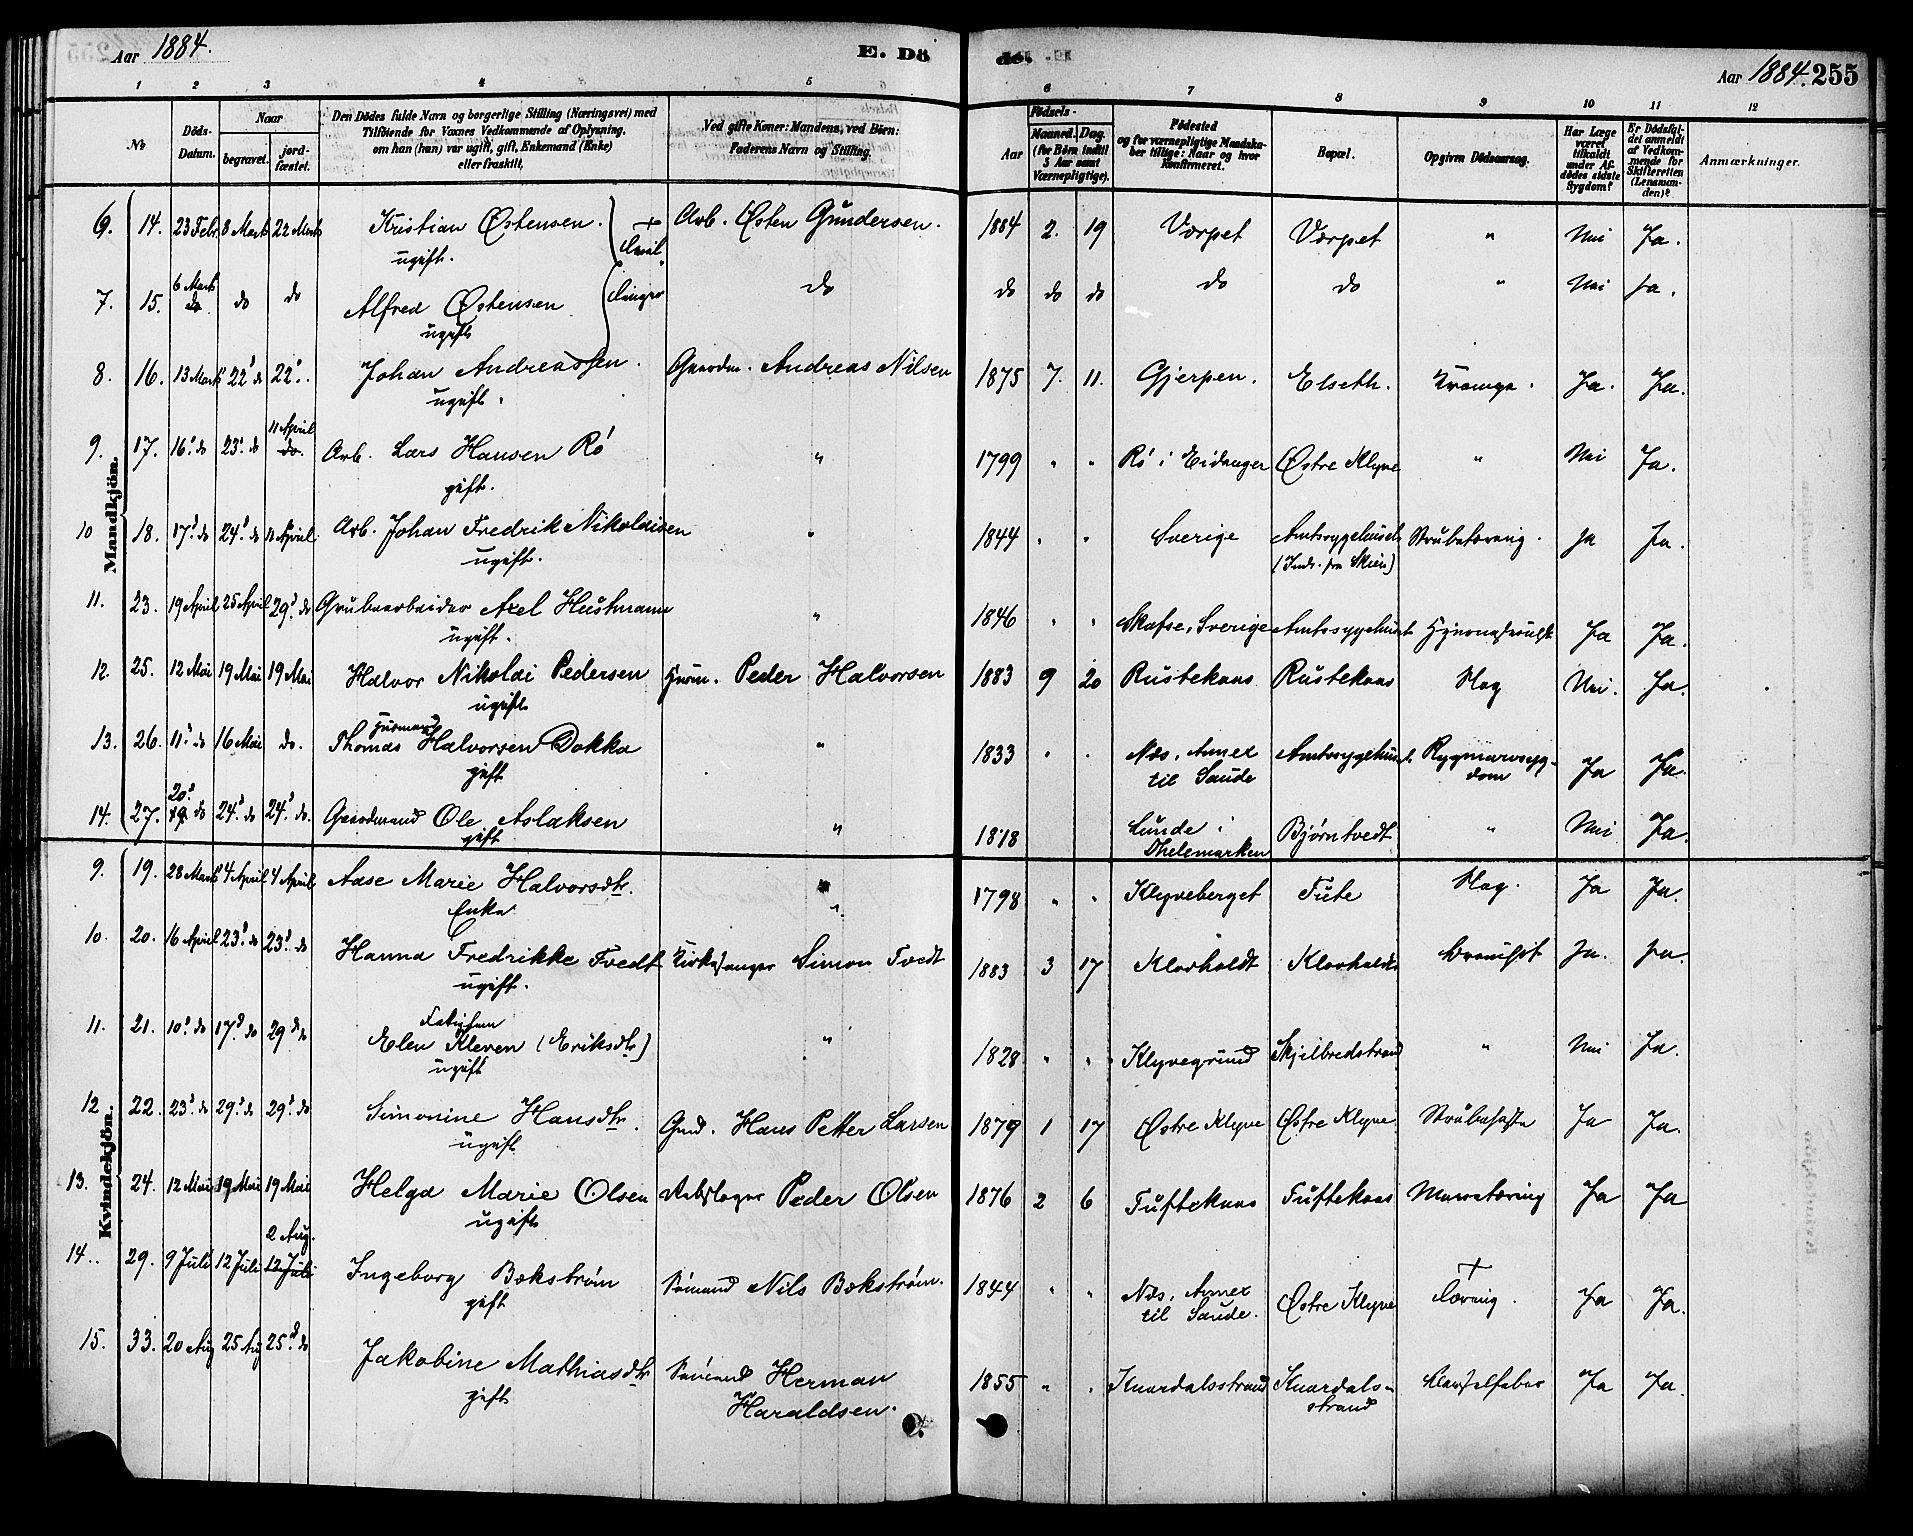 Aar 1884. E. Dö de. Aar 1884. 255
1 2 3 4 5 6 7 8 9 10 11 12
№ Döds-Datum. Naar begravet. jord-fæstet. Den Dödes fulde Navn og borgerlige Stilling (Næringsvei) med Tilföiende for Voxnes Vedkommende af Oplysning, om han (hun) var ugift, gift, Enkemand (Enke) eller fraskilt. Ved gifte Koner: Mandens, ved Börn: Faderens Navn og Stilling. Födsels- Aar Maaned. Dag. (for Börn indtil 5 Aar samt Værnepligtige). Födested og for værnepligtige Mandskaber tillige: Naar og hvor Konfirmeret. Bopæl. Opgiven Dödsaarsag. Har Læge været tilkaldt under Afdödes sidste Sygdom? Er Dödsfaldet anmeldt af Vedkommende for Skifteretten (Lensmanden)? Anmærkninger.
Mandkjön.
6. 14. 23 Febr. 8 Marts 22 Marts Kristian Østensen. ugift. Arb. Østen Gundersen. 1884 2. 19 Vorpet Vorpet " Nei Ja.
7. 15. 6 Marts do do do Alfred Østensen ugift do do do do do do " Nei Ja.
8. 16. 13 Marts 22 do 22. Johan Andreassen. ugift. Gaardm. Andreas Nilsen 1875 7. 11. Gjerpen. Elseth. Krampe. Ja. Ja.
9. 17. 16 do 23 do 11 April do. Arb. Lars Hansen Rø gift. " 1799 " " Rø i Eidanger Østre Klyve " Nei Ja.
10 18. 17 do 24 do 11 April Arb. Johan Fredrik Nikolaisen ugift. " 1844 " " Sverige Amtssygehuset (Inds. fra Skien) Strubetæring. Ja Ja.
11. 23. 19 April 25 April 29 do Grubearbeider Axel Hustmann ugift. " 1846 " " Skafse, Sverige Amtssygehuset Ja Ja.
12. 25. 12 Mai 19 Mai 19 Mai Halvor Nikolai Pedersen ugift Husm. Peder Halvorsen 1883 9 20 Rustekaas Rustekaas Slag Nei. Ja.
13. 26. 11 do 16 Mai do. Husmand Thomas Halvorsen Dokka gift " 1833 " " Næs, Annex til Saude Amtssygehuset Rygmarvssygdom Ja Ja.
14. 27. 20 19 do 24 do 24 do. Gaardmand Ole Aslaksen gift " 1818 Lunde i Thelemarken Bjørntvedt " Nei Ja.
Kvindekjön.
9. 19. 28 Marts 4 April 4 April Aase Marie Halvorsdtr. Enke " 1798 " " Klyveberget Tufte Slag. Ja Ja.
10. 20. 16 April 23 do 23 do Hanna Fredrikke Tvedt ugift. Kirkesanger Simon Tvedt 1883 3 17 Klovholdt Klovholdt Bronchit Ja. Ja.
11. 21. 10 do 17 do 29 do Fattiglem Elen Kleven (Eriksdtr) ugift " 1828 " " Klyvegrund Skjilbredstrand " Nei Ja.
12 22. 23 do 29 do 29 do Simonine Hansdtr. ugift Gmd. Hans Petter Larsen 1879 1 17 Østre Klyve Østre Klyve Strubehoste Ja Ja.
13. 24. 12 Mai 19 Mai 19 Mai Helga Marie Olsen ugift Peder Olsen 1876 2 6 Tuftekaas Tuftekaas Mavetæring Ja Ja
14. 29. 9 Juli 12 Juli 2 Aug. 12 Juli Ingeborg Bækstrøm gift Sømand Nils Bækstrøm. 1844 " " Næs, Annex til Saude. Østre Klyve Tæring. Ja Ja.
15. 33. 20 Aug 25 Aug 25 do Jakobine Mathiasdtr gift Sømand Herman Haraldsen. 1855 " " Knardalsstrand Knardals-strand Barselfeber Ja Ja.